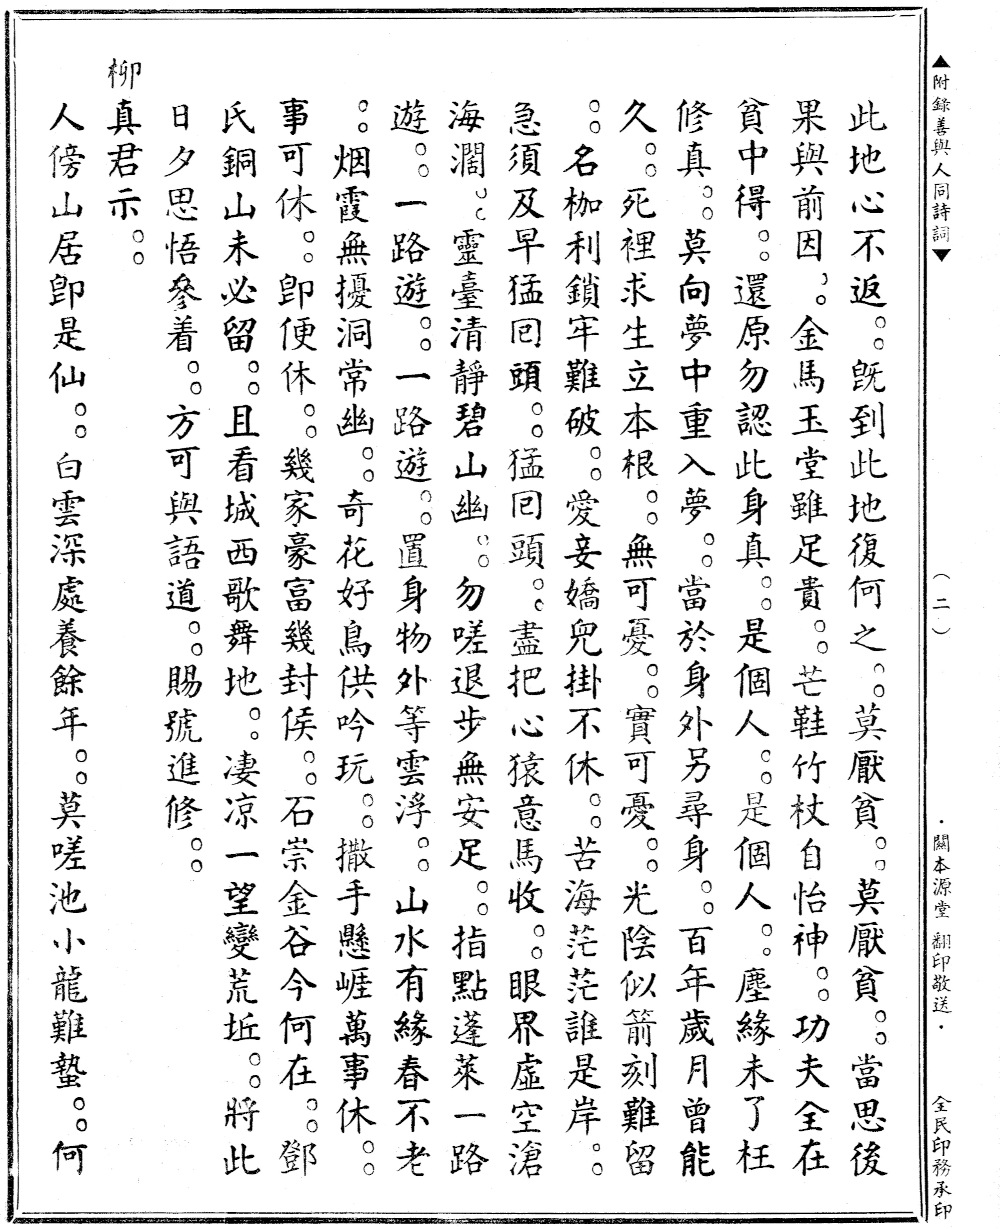 ▲附錄善與人同詩詞▼ （二） ・關本源堂 翻印敬送・ 全民印務承印
此地心不返。。旣到此地復何之。。莫厭貧。。莫厭貧。。當思後
果與前因。。金馬玉堂雖足貴。。芒鞋竹杖自怡神。。功夫全在
貧中得。。還原勿認此身真。。是個人。。是個人。。塵緣未了枉
修真。。莫向夢中重入夢。。當於身外另尋身。。百年歲月曾能
久。。死裡求生立本根。。無可憂。。實可憂。。光陰似箭刻難留
。。名枷利鎖牢難破。。愛妾嬌兒掛不休。。苦海茫茫誰是岸。。
急須及早猛囘頭。。猛囘頭。。盡把心猿意馬收。。眼界虛空滄
海濶。。靈臺清靜碧山幽。。勿嗟退步無安足。。指點蓬萊一路
遊。。一路遊。。一路遊。。置身物外等雲浮。。山水有緣春不老
。。烟霞無擾洞常幽。。奇花好鳥供吟玩。。撒手懸崕萬事休。。
事可休。。卽便休。。幾家豪富幾封侯。。石崇金谷今何在。。鄧
氏銅山未必留。。且看城西歌舞地。。凄凉一望變荒坵。。將此
日夕思悟參着。。方可與語道。。賜號進修。。
柳真君示。。
人傍山居卽是仙。。白雲深處養餘年。。莫嗟池小龍難蟄。。何